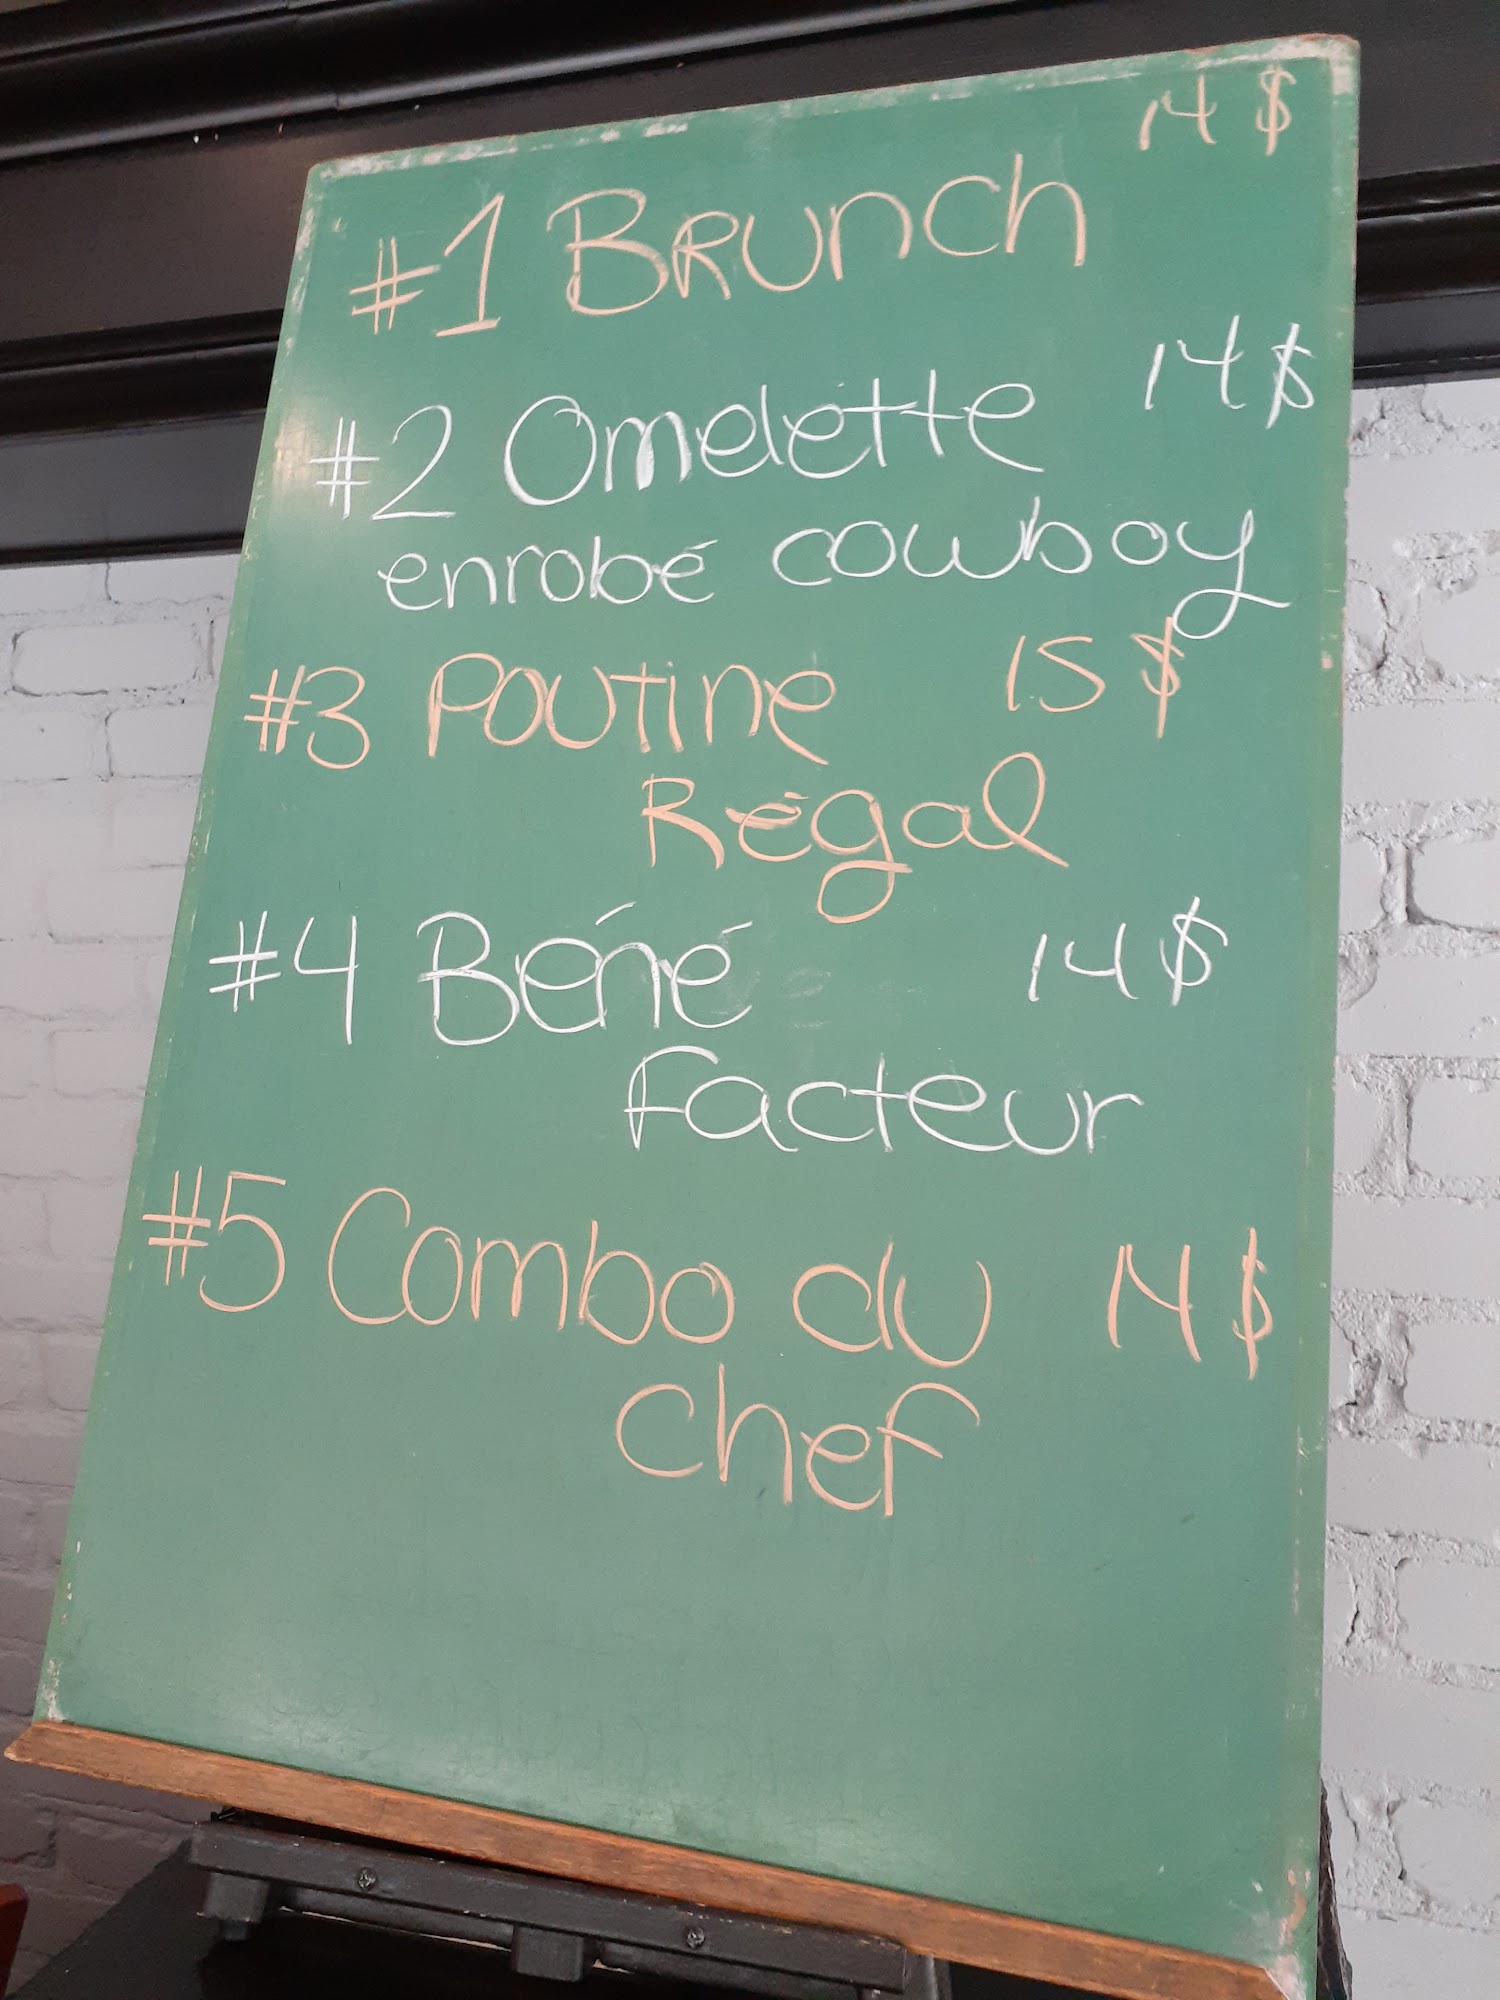 14 $
#1 Brunch
#2 Omelette 14 $
enrobé cowboy
#3 Poutine 15 $
Régal
#4 Béné 14 $
Facteur
#5 Combo du 14 $
chef